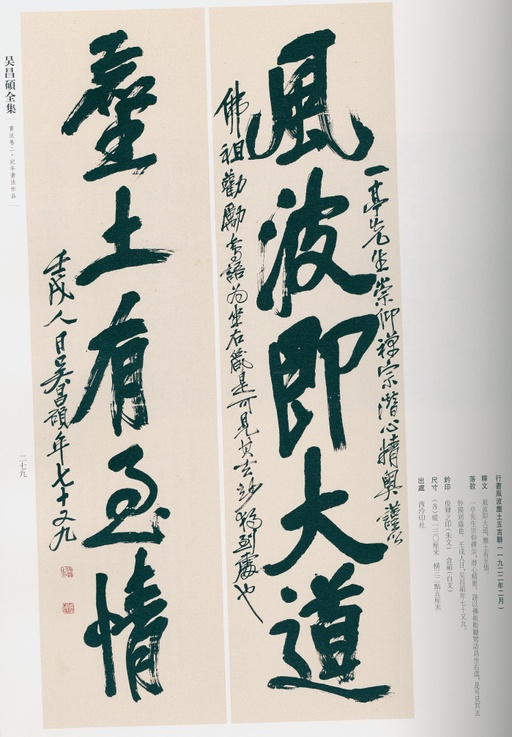 行書風波塵土五言聯（一九二二年二月）
釋文 風波即大道，塵土有至情。
落款 一亭先生崇仰禪宗，潛心精奧，謹以佛祖勸勵等語爲坐右箴，是可見其玄
妙獨到處也。壬戌人日，吳昌碩年七十又九。
鈐印 俊卿之印（朱文） 倉碩（白文）
尺寸 （各）縱一三〇厘米 橫三二點五厘米
出處 西泠印社
一亭先生崇仰禪宗潛心精奧謹以
風波即大道
佛祖勸勵等語為坐右箴是可見其玄妙獨到處也
塵土有至情
壬戌人日吳昌碩年七十又九
吴昌碩全集
書法卷二·紀年書法作品
二七九